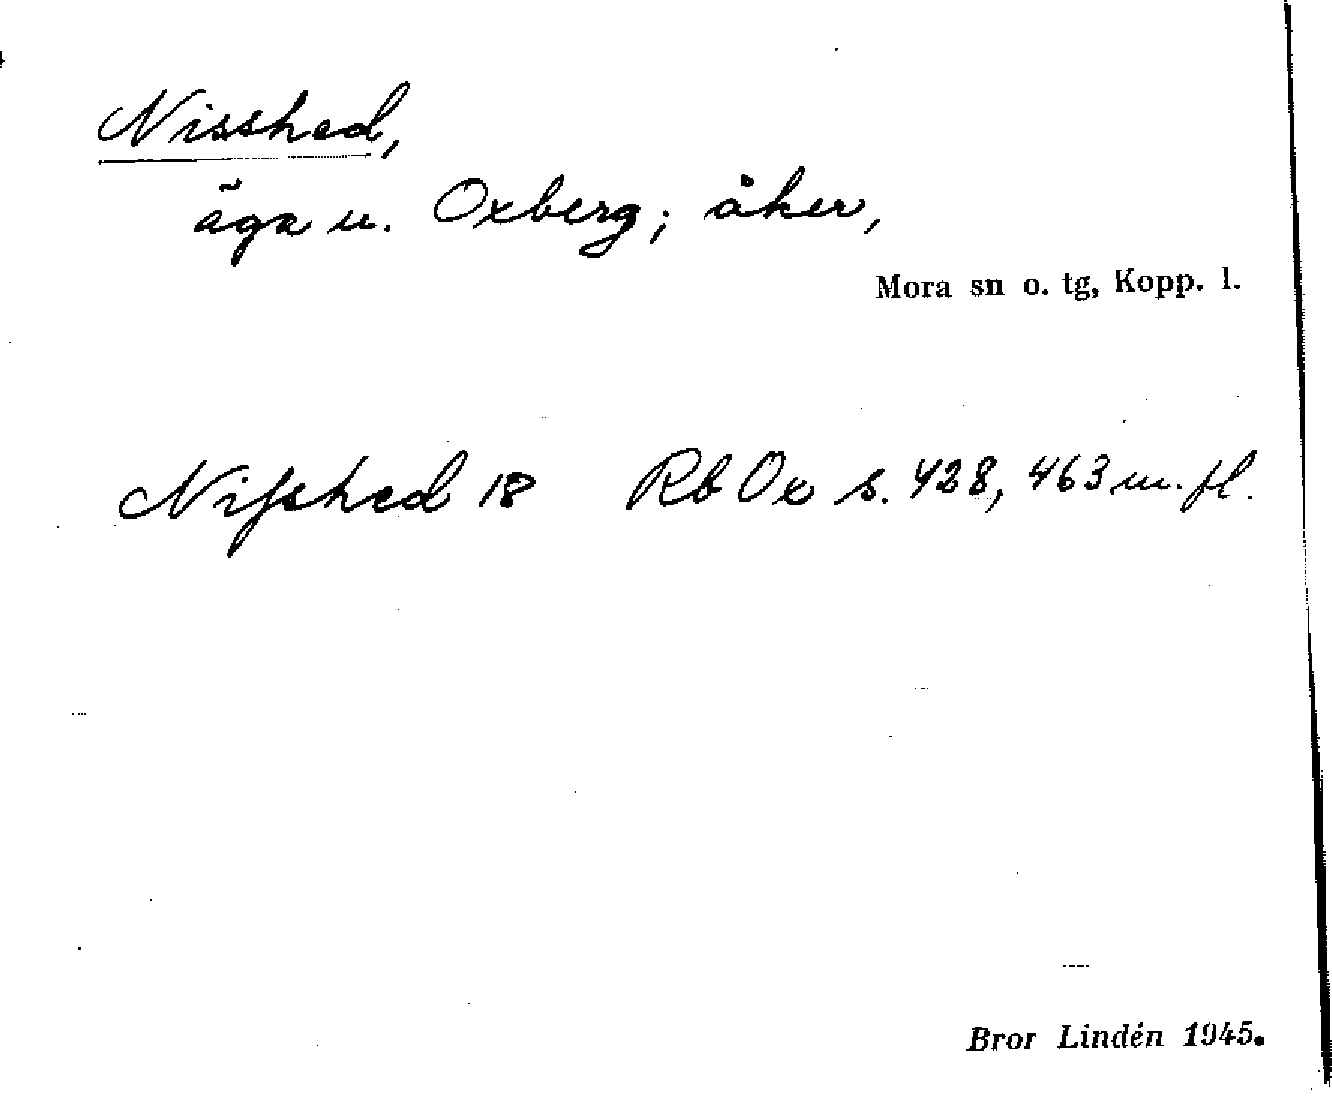 Nisshed,
äga u. Oxberg; åker,
Mora sn o. tg, Kopp. l.
Niſshed 18 Rb Ox s. 428, 463 m. fl.
Bror Lindén 1945.